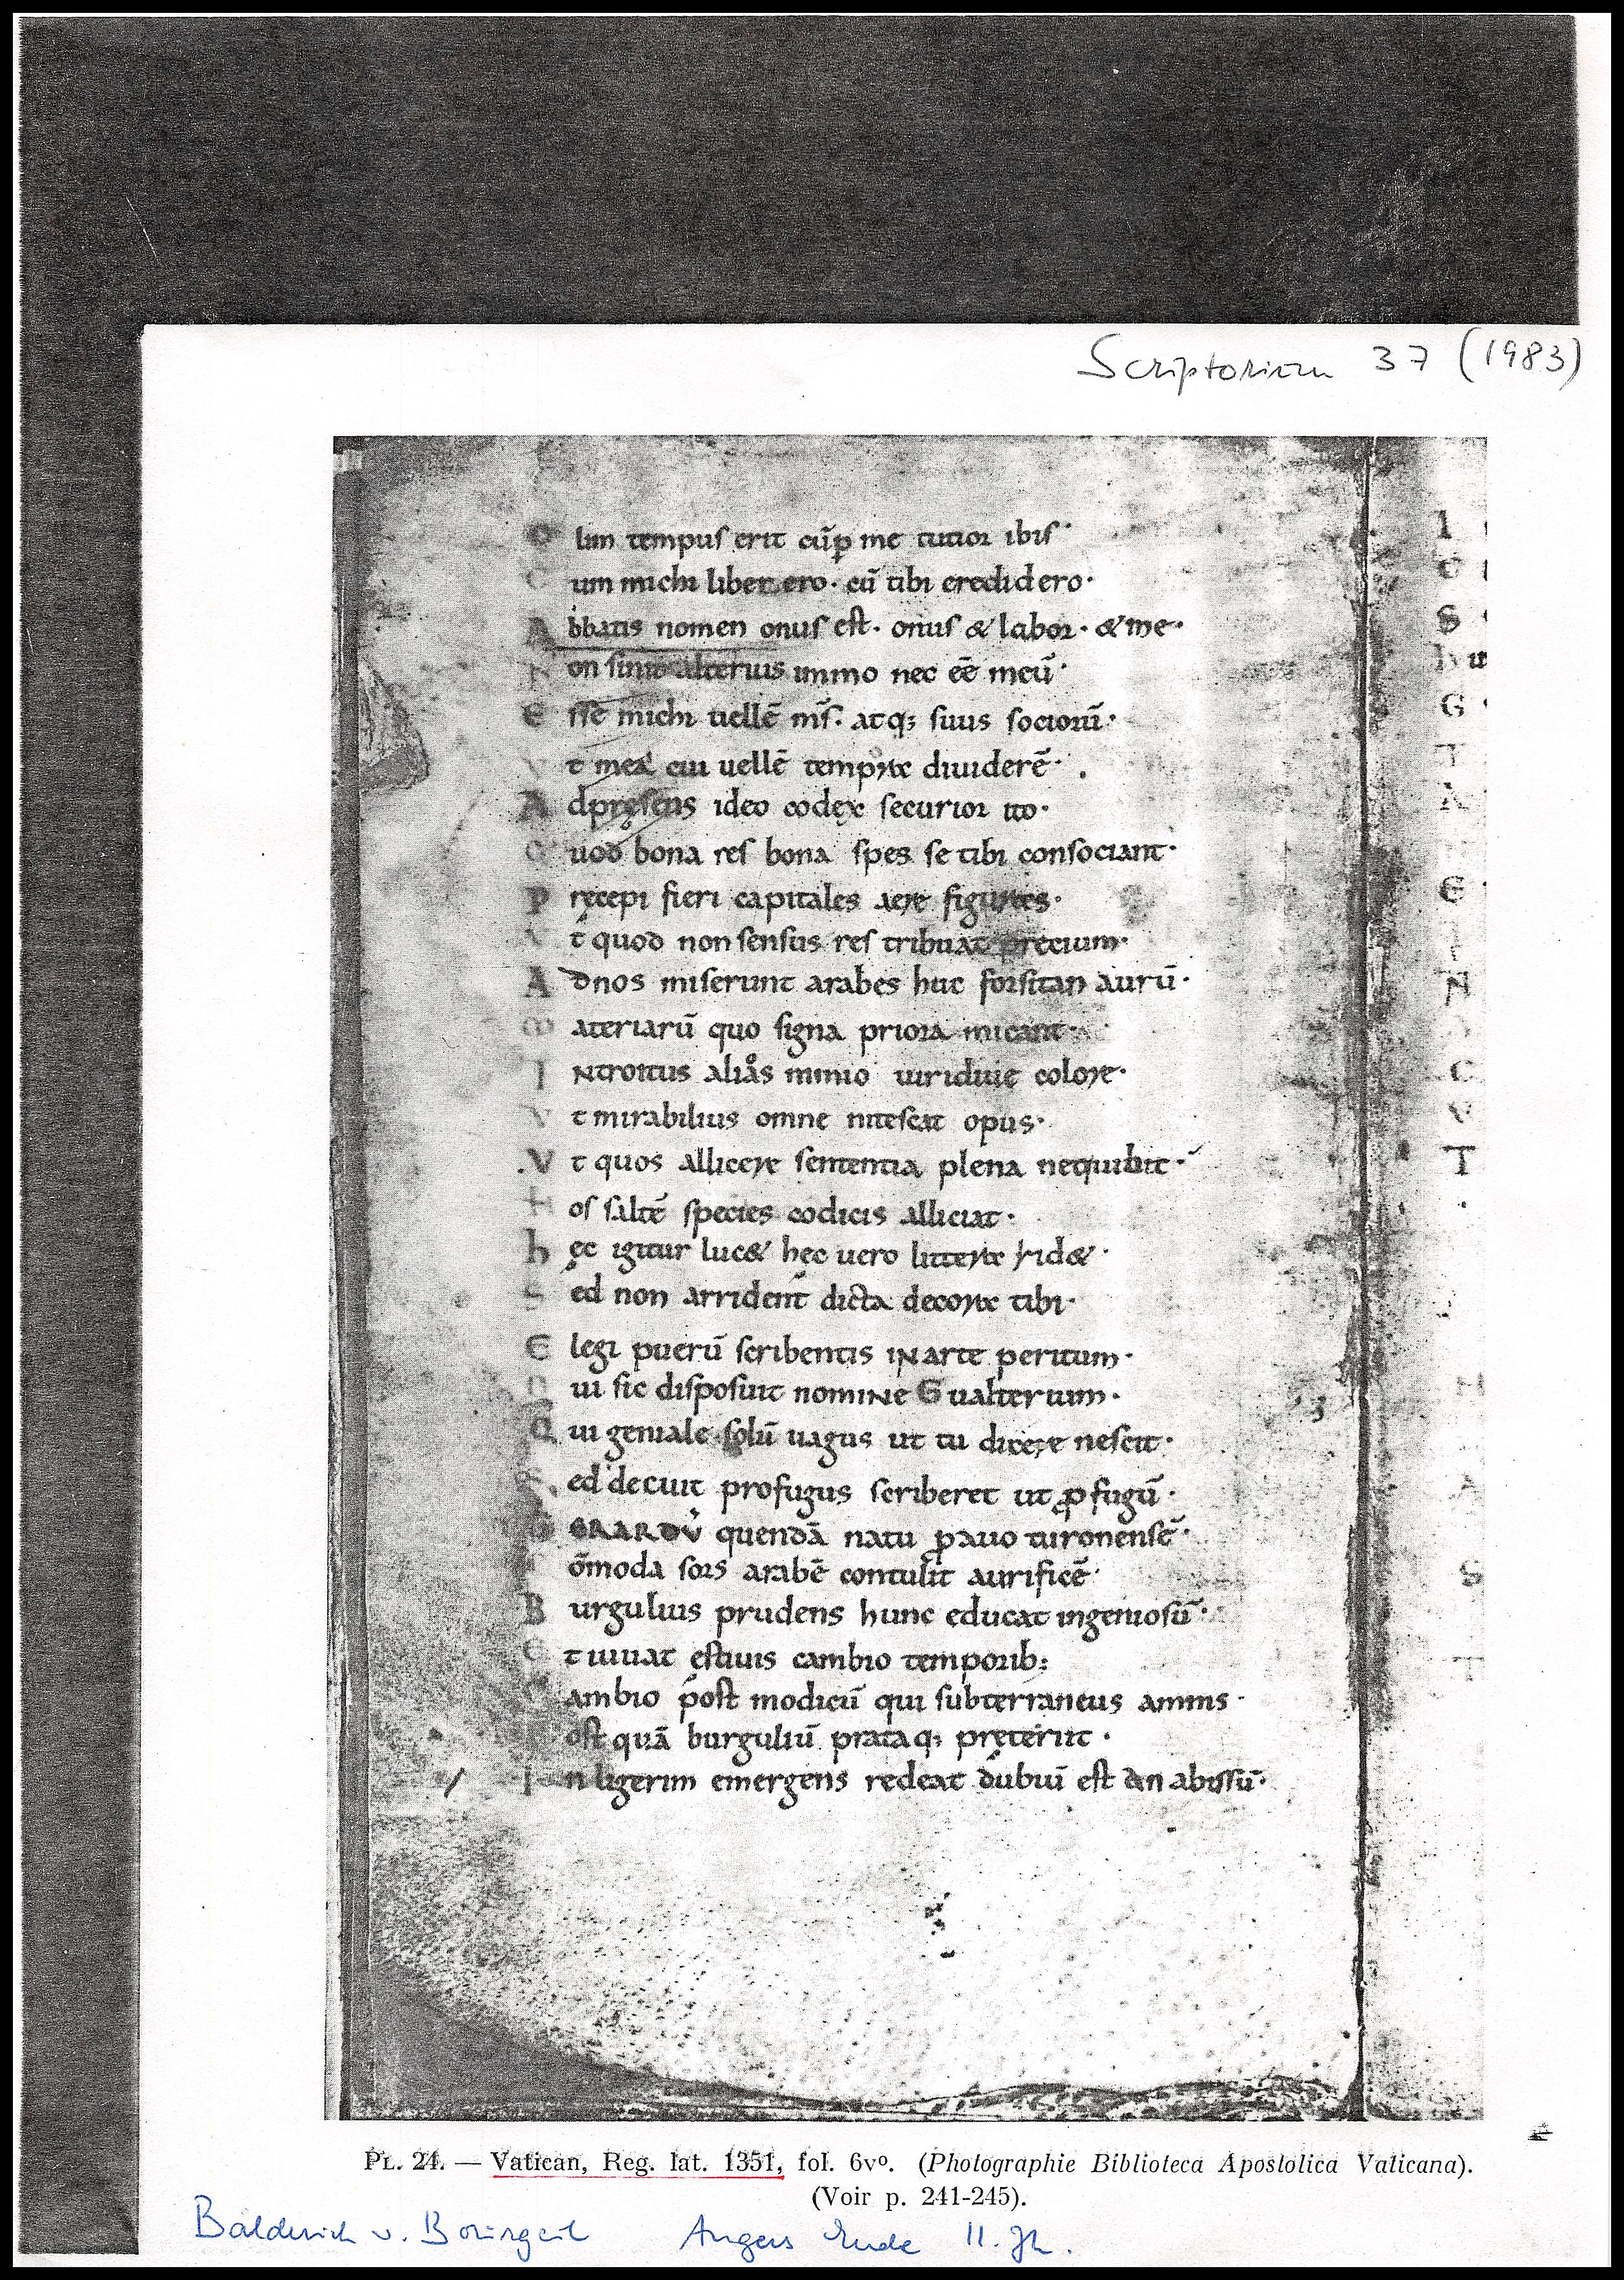 Scriptorium 37 (1983)
O lim tempus erit cū p me tutior ibis
C um michi liber ero. cū tibi credidero.
A bbatis nomen onus est. onus & labor. & me.
N on sinit alterius immo nec eē meū.
E sse michi uellē mīs. atq; suus sociorū.
V t mea cui uellē tempora diuiderē.
A d pręsens ideo codex securior ito.
Q uod bona res bona spes se tibi consociant.
P ręcepi fieri capitales aere figuras.
V t quod non sensus res tribuat precium.
A d nos miserunt arabes huc forsitan aurū.
M ateriarū quo signa priora micant.
I ntroitus alios minio uiridiue colore.
V t mirabilius omne nitescat opus.
V t quos allicere sententia plena nequibit.
H os saltē species codicis alliciat.
h ęc igitur lucet hęc uero littera ridet.
S ed non arrident dicta decora tibi.
E legi puerū scribentis in arte peritum.
Q ui sic disposuit nomine Gualterium.
Q ui geniale solū uagus ut tu dicere nescit.
S ed decuit profugus scriberet ut pfugū.
G ERARDV̄ quendā natu pauo turonensē.
C ōmoda sors arabē contulit aurificē.
B urgulius prudens hunc educat ingeniosū.
E t iuuat estiuis cambio temporib;
C ambio post modicū qui subterraneus amnis.
P ost quā burguliū prataq; pręteriit.
I n ligerim emergens redeat dubiū est an abissū.
PL. 24. — Vatican, Reg. lat. 1351, fol. 6vº. (Photographie Biblioteca Apostolica Vaticana).
(Voir p. 241-245).
Balderich v. Bourgeil Angers Ende 11. Jh.